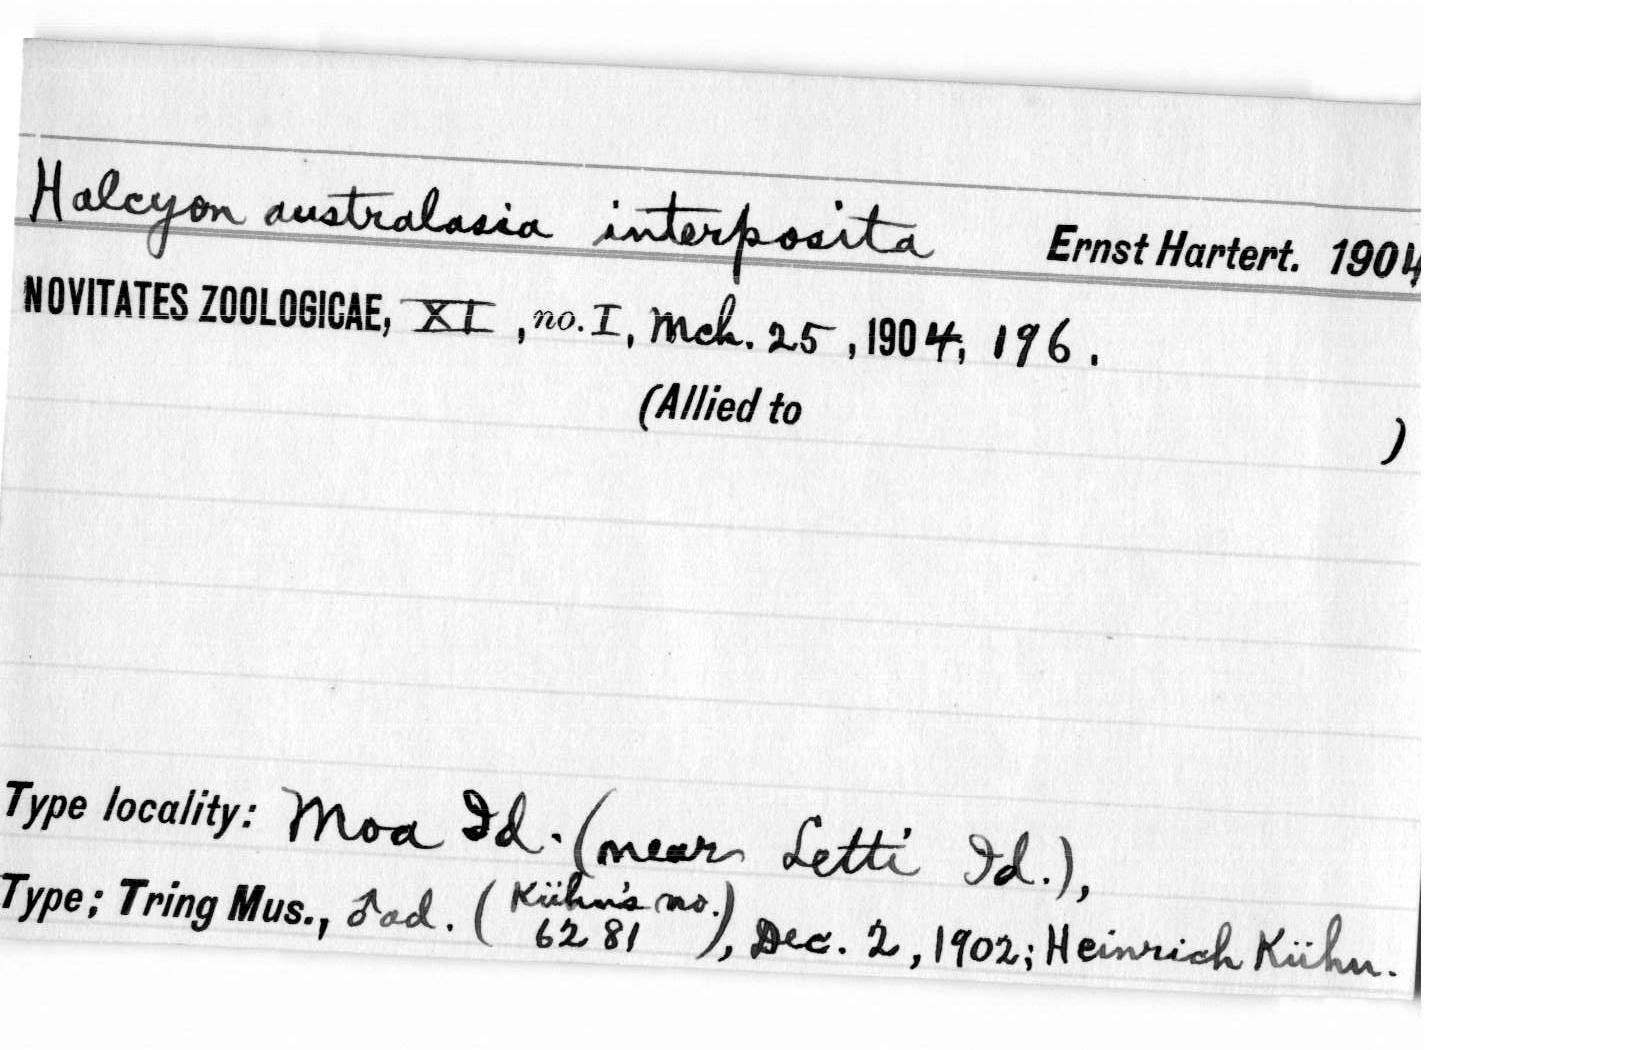 Halcyon australasia interposita Ernst Hartert. 1904
NOVITATES ZOOLOGICAE, XI, no. I, Mch. 25, 1904, 196.
(Allied to )
Type locality: Moa Id. (near Letti Id.),
Type; Tring Mus., ♂ad. (Kühn's no. 6281), Dec. 2, 1902; Heinrich Kühn.